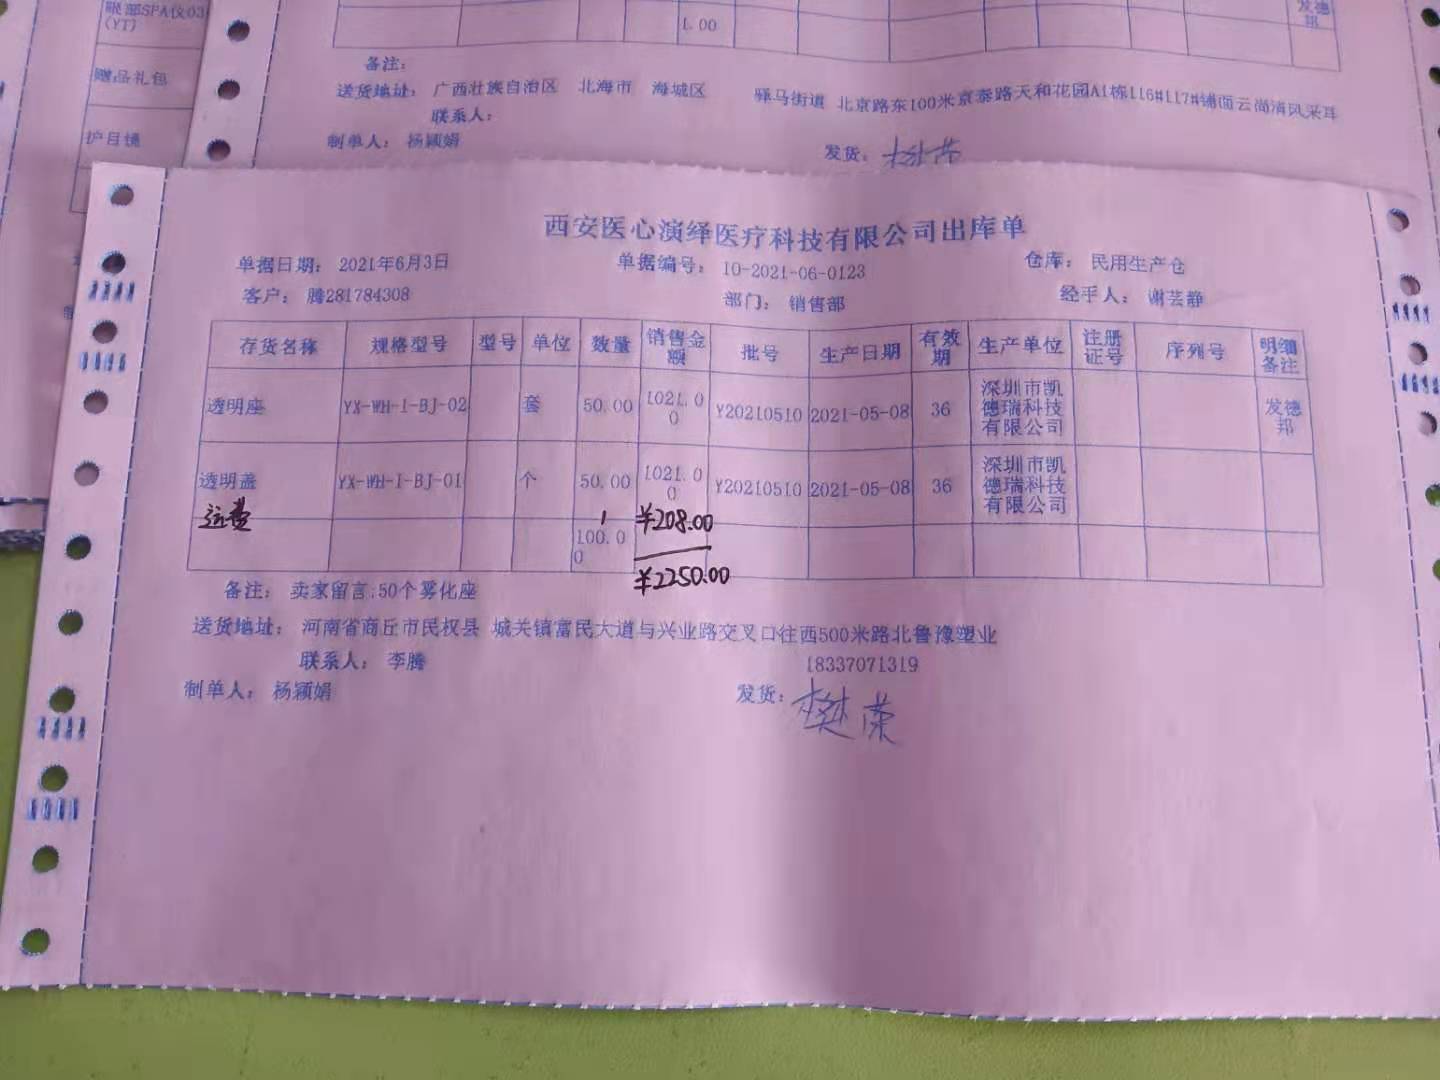 眼部SPA仪03
(YT)
赠品礼包
护目镜
1.00
发德
邦
备注:
送货地址: 广西壮族自治区 北海市 海城区 驿马街道 北京路东100米京泰路天和花园A1栋116#117#铺面云尚清风采耳
联系人:
制单人: 杨颖娟 发货: 樊荣
西安医心演绎医疗科技有限公司出库单
单据日期: 2021年6月3日 单据编号: IO-2021-06-0123 仓库: 民用生产仓
客户: 腾281784308 部门: 销售部 经手人: 谢芸静
存货名称 规格型号 型号 单位 数量 销售金额 批号 生产日期 有效期 生产单位 注册证号 序列号 明细备注
透明座 YX-WH-I-BJ-02 套 50.00 1021.00 Y20210510 2021-05-08 36 深圳市凯德瑞科技有限公司 发德邦
透明盖 YX-WH-I-BJ-01 个 50.00 1021.00 Y20210510 2021-05-08 36 深圳市凯德瑞科技有限公司
运费 1 ¥208.00
100.00 ¥2250.00
备注: 卖家留言:50个雾化座
送货地址: 河南省商丘市民权县 城关镇富民大道与兴业路交叉口往西500米路北鲁豫塑业
联系人: 李腾 18337071319
制单人: 杨颖娟 发货: 樊荣